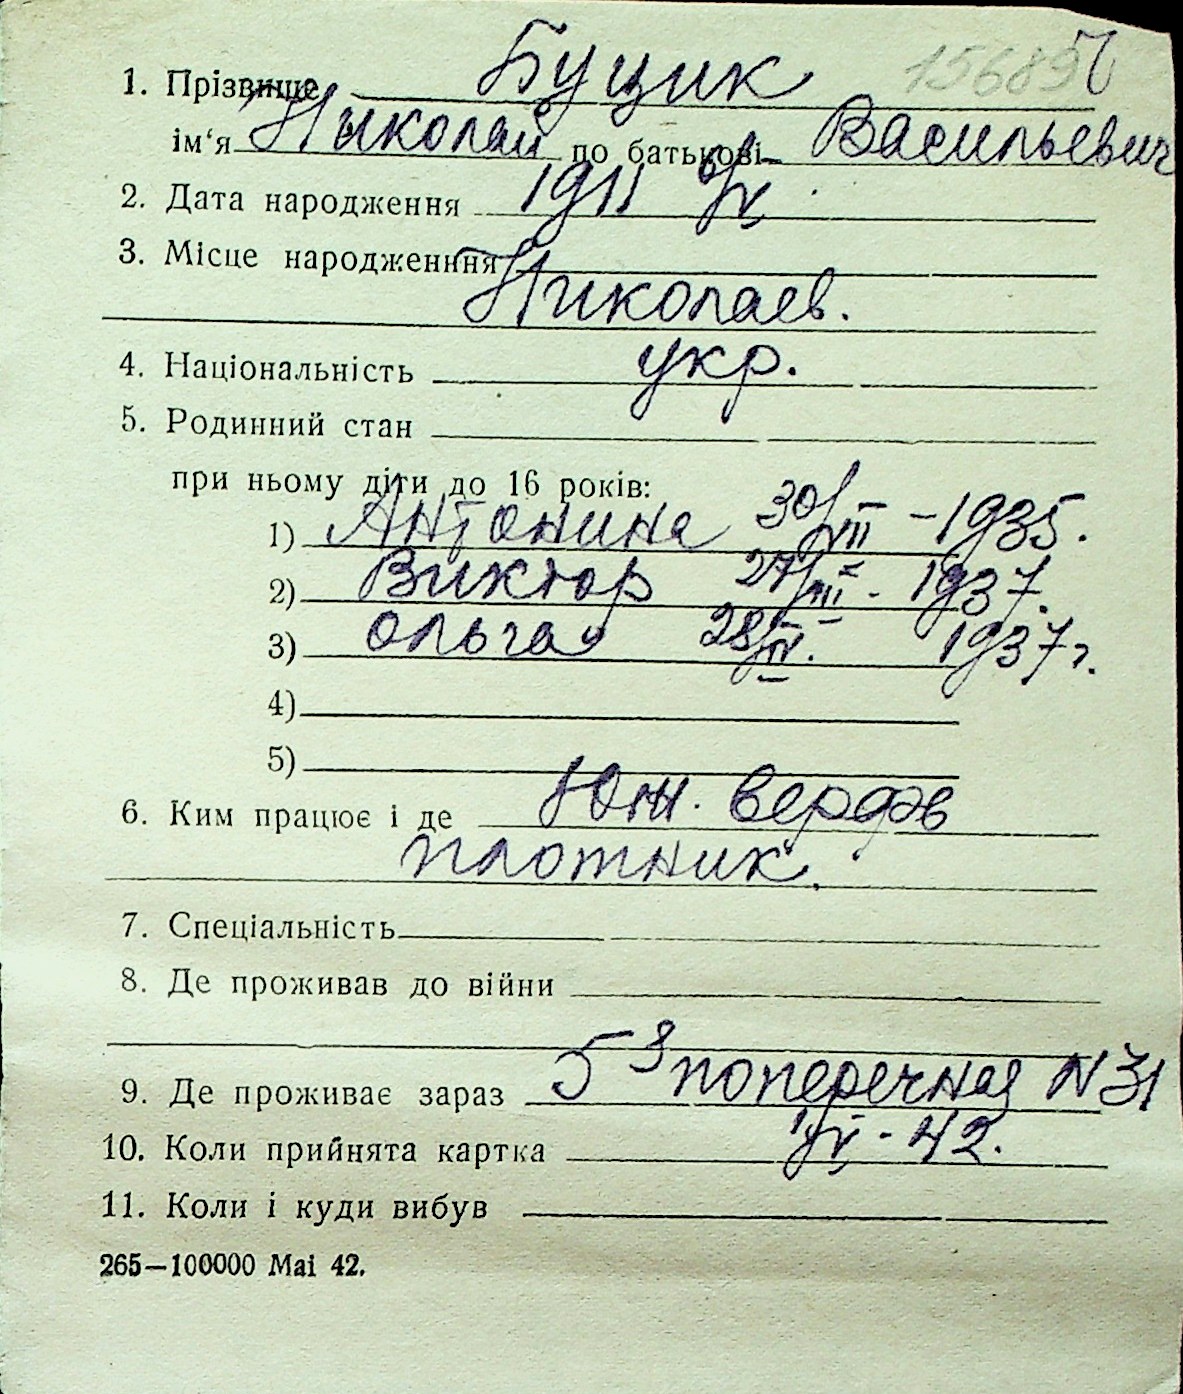 156897
1. Прізвище Буцик
ім‘я Николай по батькові Васильевич
2. Дата народження 1911 6/V
3. Місце народженння
Николаев.
4. Національність укр.
5. Родинний стан
при ньому діти до 16 років:
1) Антонина 30/VII – 1935.
2) Виктор 27/III - 1937.
3) Ольга 28/IV. 1937 г.
4)
5)
6. Ким працює і де Юж. верфь
плотник.
7. Спеціальність
8. Де проживав до війни
9. Де проживає зараз 5 я поперечная N 31
10. Коли прийнята картка 1/V - 42.
11. Коли і куди вибув
265—100000 Mai 42.